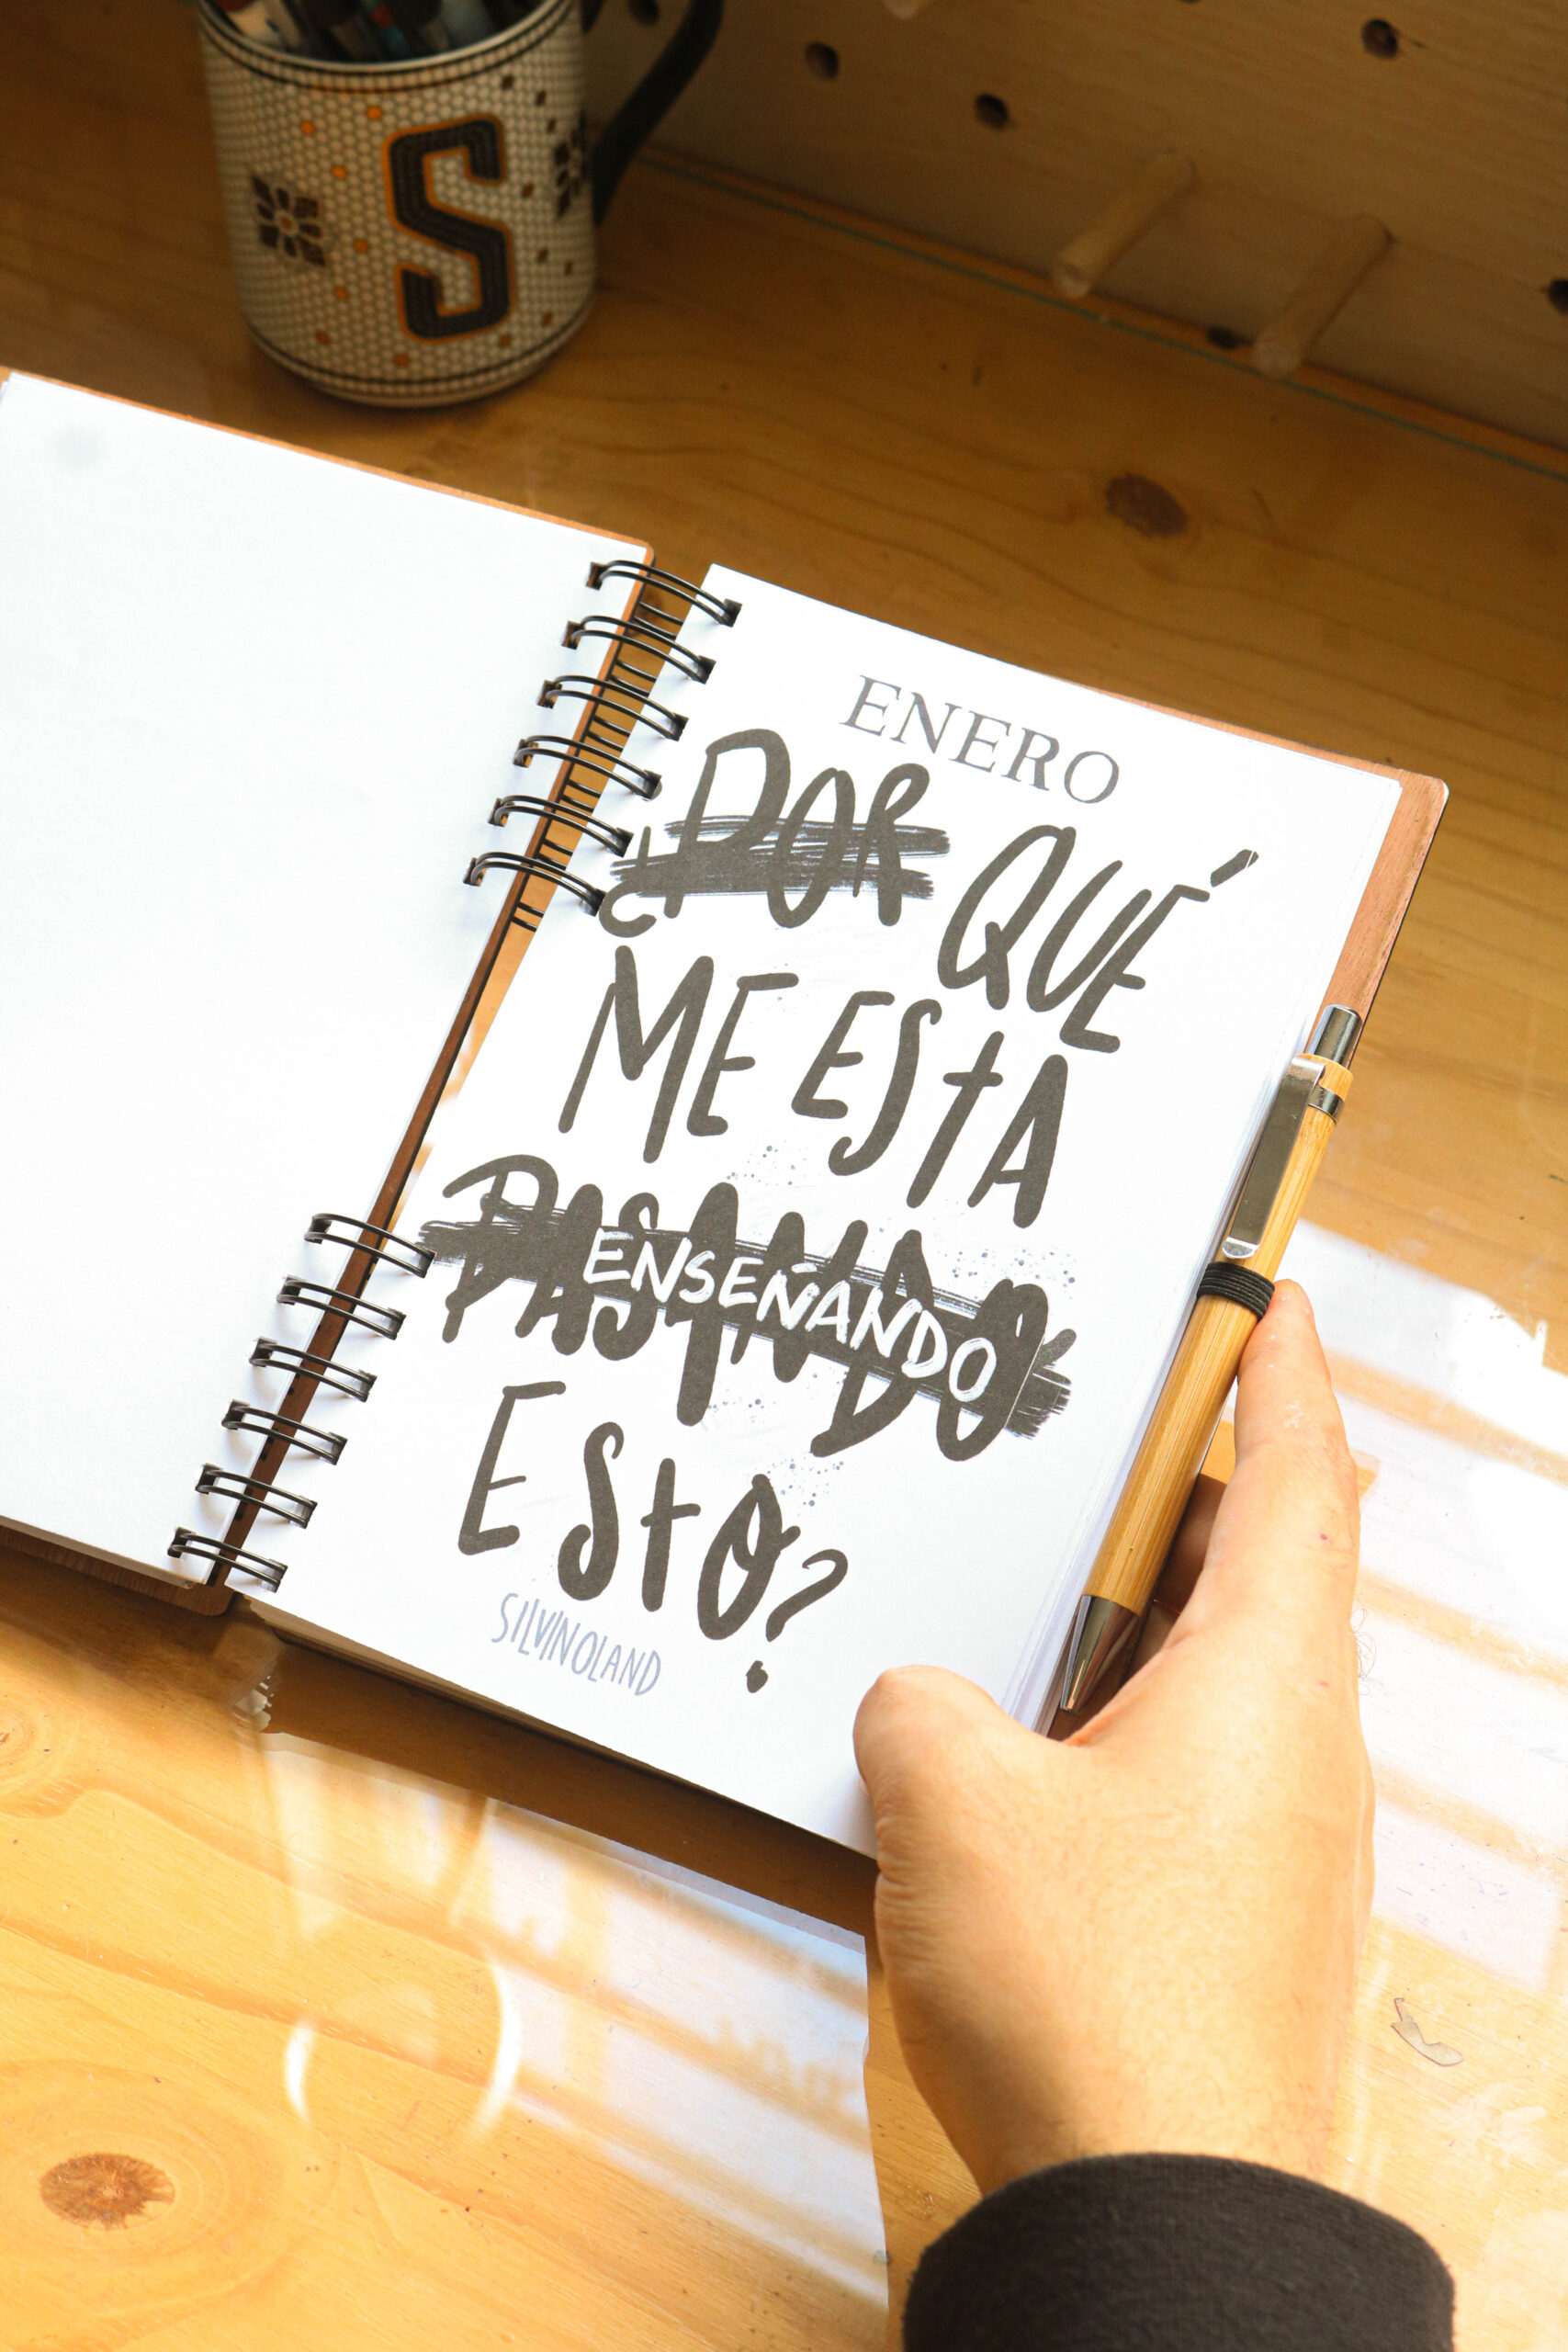 S
ENERO
¿POR QUÉ
ME ESTA
PASANDO
ENSEÑANDO
ESTO?
SILVINOLAND